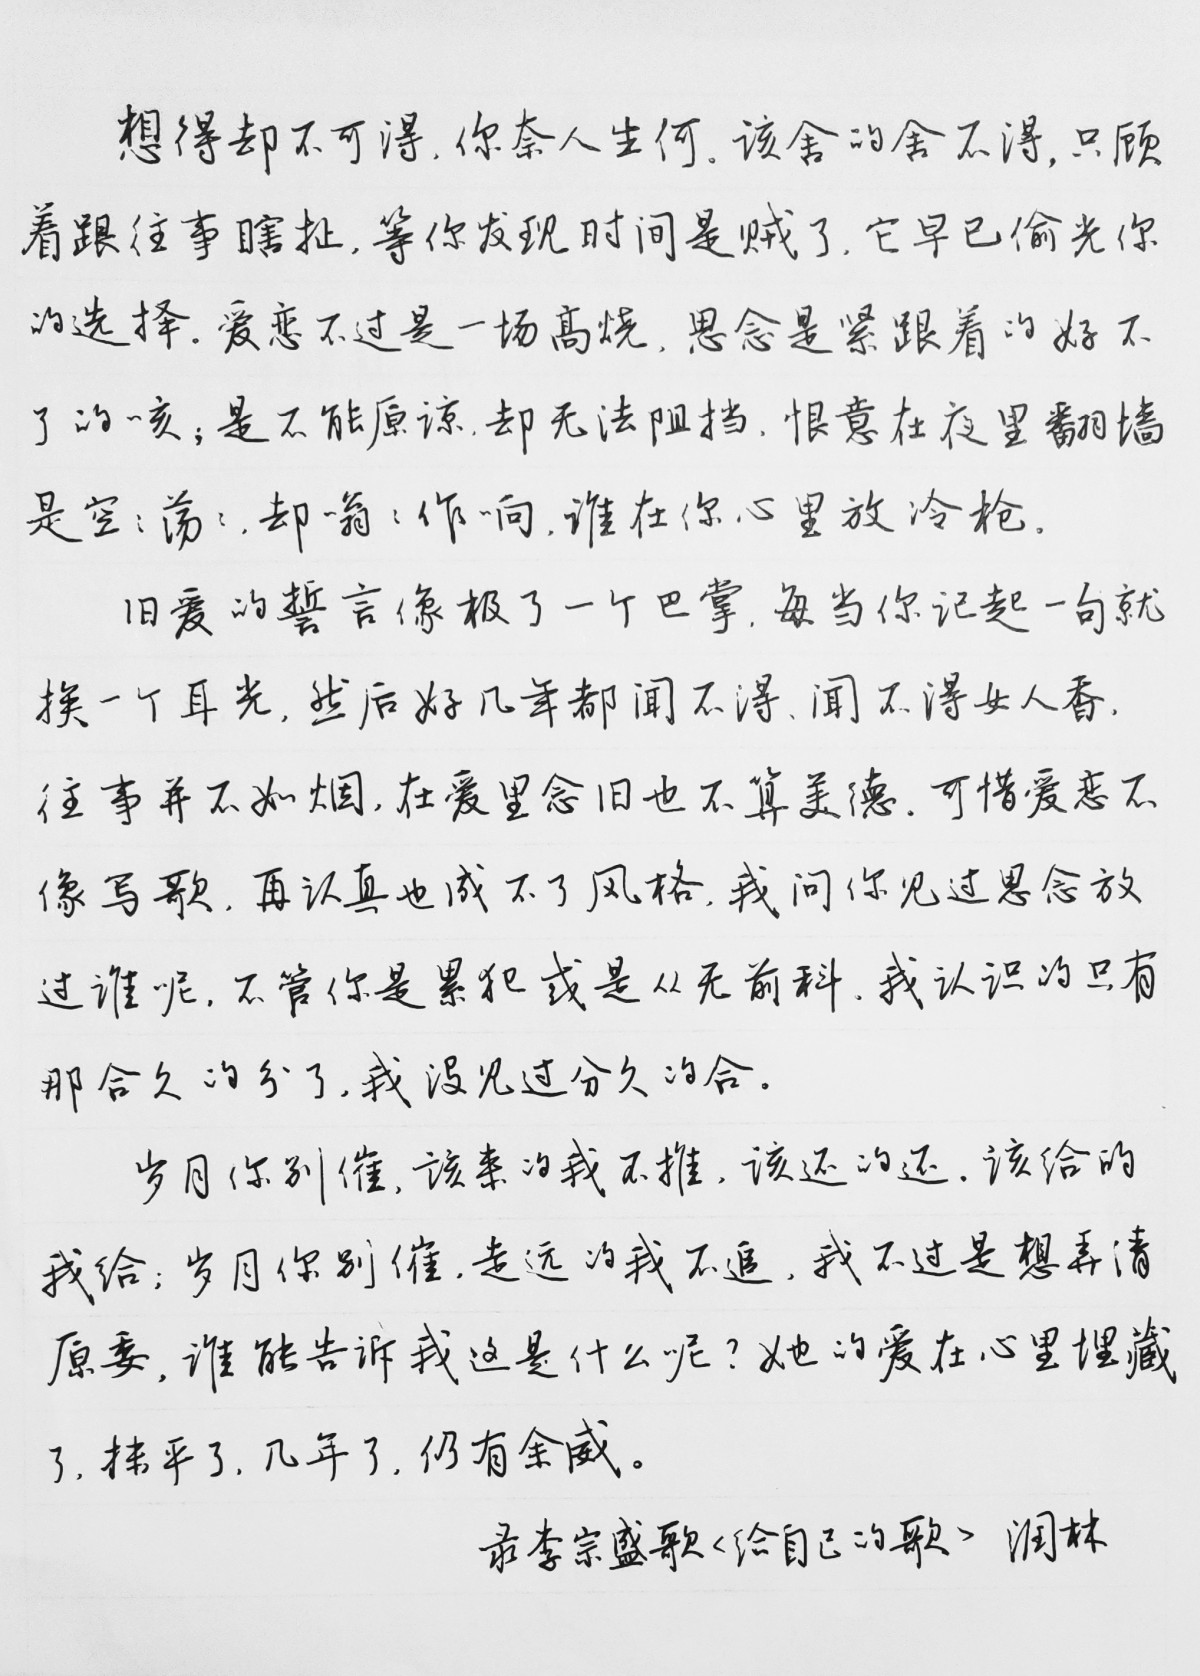 想得却不可得,你奈人生何。该舍的舍不得,只顾
着跟往事瞎扯,等你发现时间是贼了,它早已偷光你
的选择.爱恋不过是一场高烧,思念是紧跟着的好不
了的咳;是不能原谅,却无法阻挡,恨意在夜里翻墙
是空:荡:,却嗡:作响,谁在你心里放冷枪.
旧爱的誓言像极了一个巴掌,每当你记起一句就
挨一个耳光,然后好几年都闻不得、闻不得女人香.
往事并不如烟,在爱里念旧也不算美德.可惜爱恋不
像写歌,再认真也成不了风格,我问你见过思念放
过谁呢,不管你是累犯或是从无前科,我认识的只有
那合久的分了,我没见过分久的合。
岁月你别催,该来的我不推,该还的还.该给的
我给;岁月你别催,走远的我不追,我不过是想弄清
原委,谁能告诉我这是什么呢?她的爱在心里埋藏
了,抹平了,几年了,仍有余威。
录李宗盛歌<给自己的歌> 润林